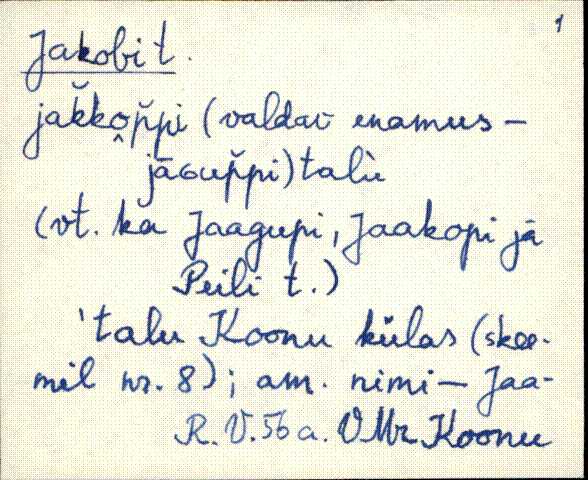 1
Jakobi t.
jak̆ko̭p̆pi (valdav enamus –
jāGup̆pi) talù
(vt. ka Jaagupi, Jaakopi jā
Peili t.)
'talu Koonu külas (skee-
mil nr. 8); am. nimi – Jaa-
R. V. 56 a. VMr Koonu